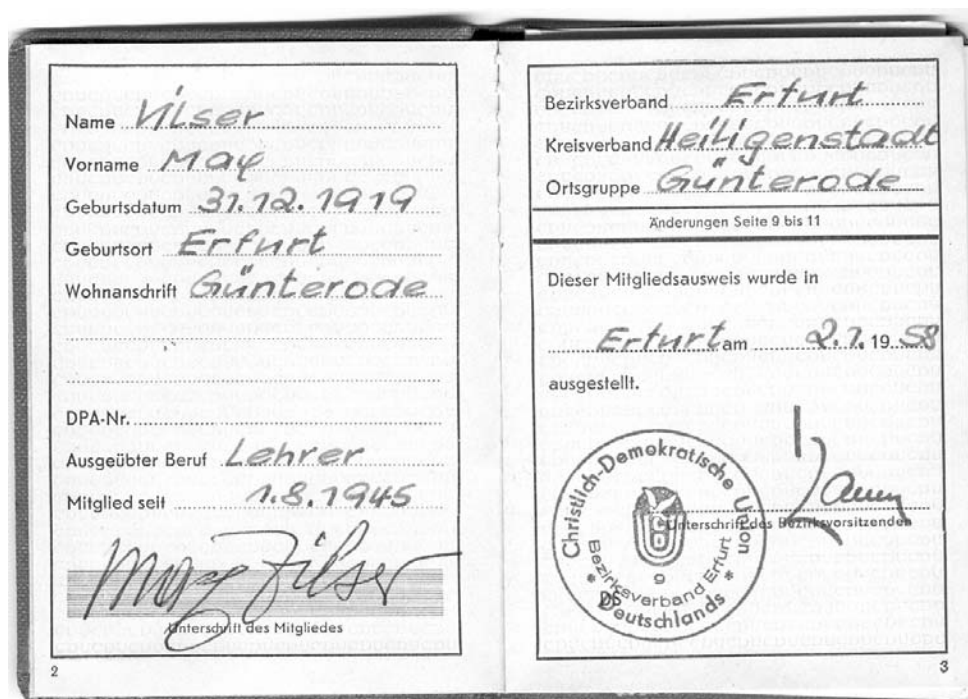 Name Vilser
Vorname Max
Geburtsdatum 31.12.1919
Geburtsort Erfurt
Wohnanschrift Günterode
DPA-Nr.
Ausgeübter Beruf Lehrer
Mitglied seit 1.8.1945
Max Vilser
Unterschrift des Mitgliedes
2
Bezirksverband Erfurt
Kreisverband Heiligenstadt
Ortsgruppe Günterode
Änderungen Seite 9 bis 11
Dieser Mitgliedsausweis wurde in
Erfurt am 2.7. 1958
ausgestellt.
Unterschrift des Bezirksvorsitzenden
Christlich-Demokratische Union
* Deutschlands *
Bezirksverband Erfurt
CDU
9
3